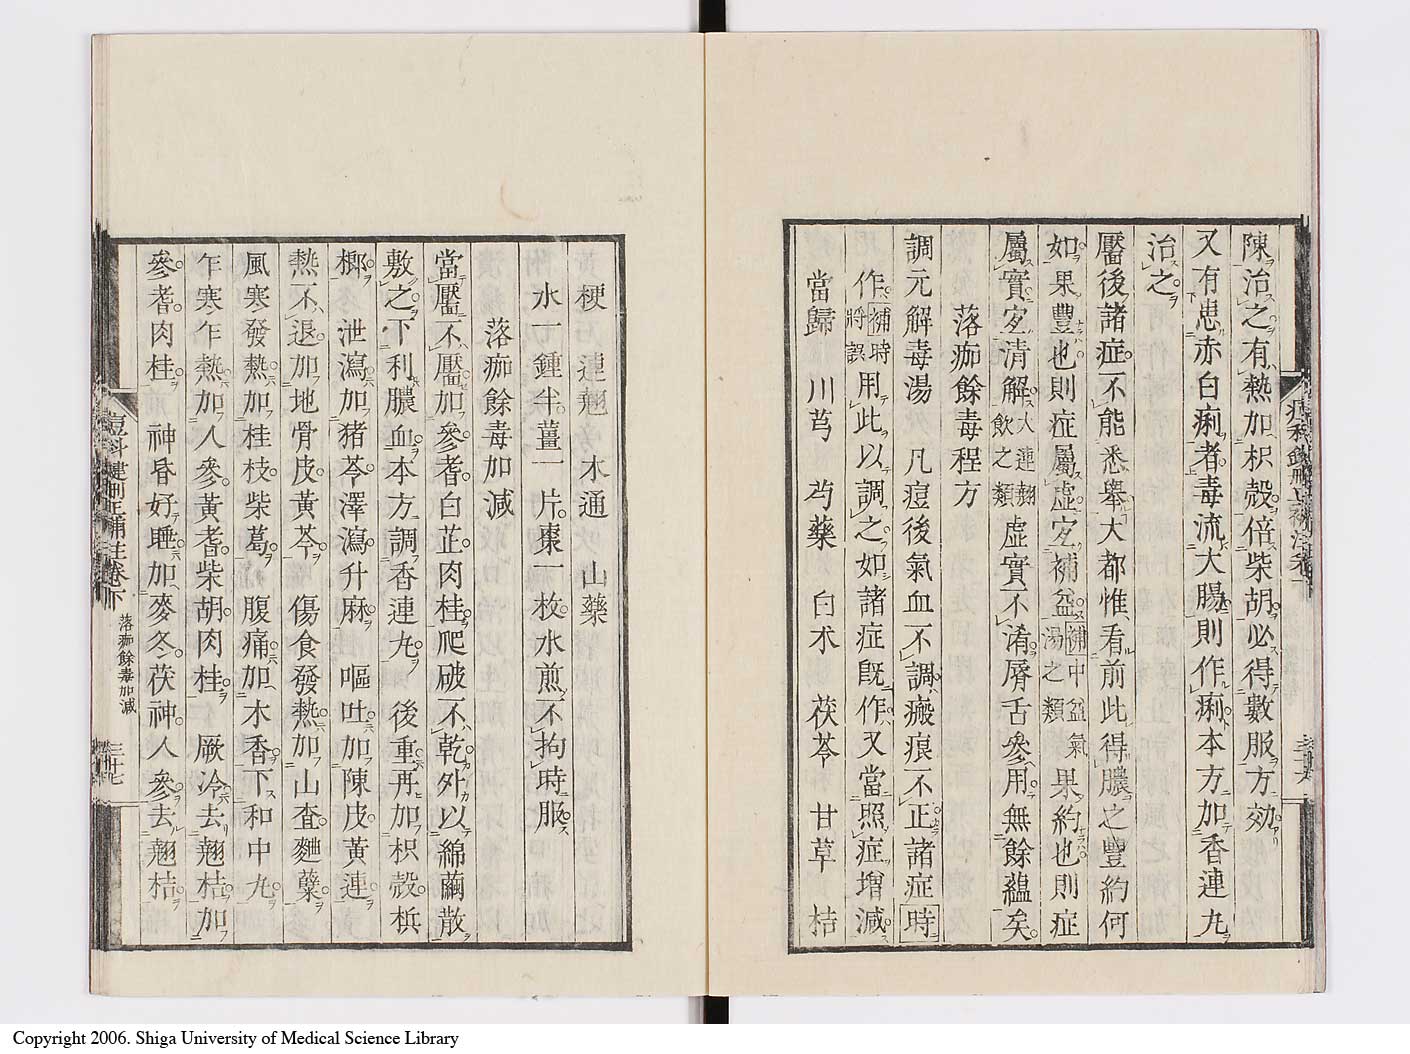 陳治之有熱加枳殼倍柴胡必得數服方効
又有患赤白痢者毒流大腸則作痢本方加香連丸
治之
靨後諸症不能悉舉大都惟看前此得膿之豐約何
如果豐也則症屬虛宜補益補中益氣湯之類果約也則症
屬實宜清解大連翹飲之類虛實不淆唇舌參用無餘蘊矣
落痂餘毒程方
調元解毒湯 凡痘後氣血不調瘢痕不正諸症時
作補時將誤用此以調之如諸症既作又當照症增減
當歸 川芎 芍藥 白朮 茯苓 甘草 桔
梗 連翹 木通 山藥
水一鍾半薑一片棗一枚水煎不拘時服
落痂餘毒加減
當靨不靨加參耆白芷肉桂爬破不乾外以綿繭散
敷之下利膿血本方調香連丸 後重再加枳殼梹
榔 泄瀉加猪苓澤瀉升麻 嘔吐加陳皮黃連
熱不退加地骨皮黃芩 傷食發熱加山査麯蘗
風寒發熱加桂枝柴葛 腹痛加木香下和中丸
乍寒乍熱加人參黃耆柴胡肉桂 厥冷去翹桔加
參耆肉桂 神昏好睡加麥冬茯神人參去翹桔
痘科鍵刪正補註卷下 落痂餘毒加減 三十七
Copyright 2006. Shiga University of Medical Science Library